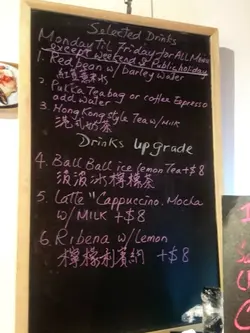 Selected Drinks
Monday Til Friday for ALL Menu
except weekend & Public holiday
1. Red bean w/ barley water
紅豆薏米水
2. Pukka Tea bag or coffee Espresso
add water
3. Hong Kong style Tea w/ Milk
港式奶茶
Drinks upgrade
4. Ball Ball ice lemon Tea +$8
波波冰檸檬茶
5. Latte "Cappuccino, Mocha
w/ MILK +$8
6. Ribena w/ Lemon
檸檬利賓納 +$8